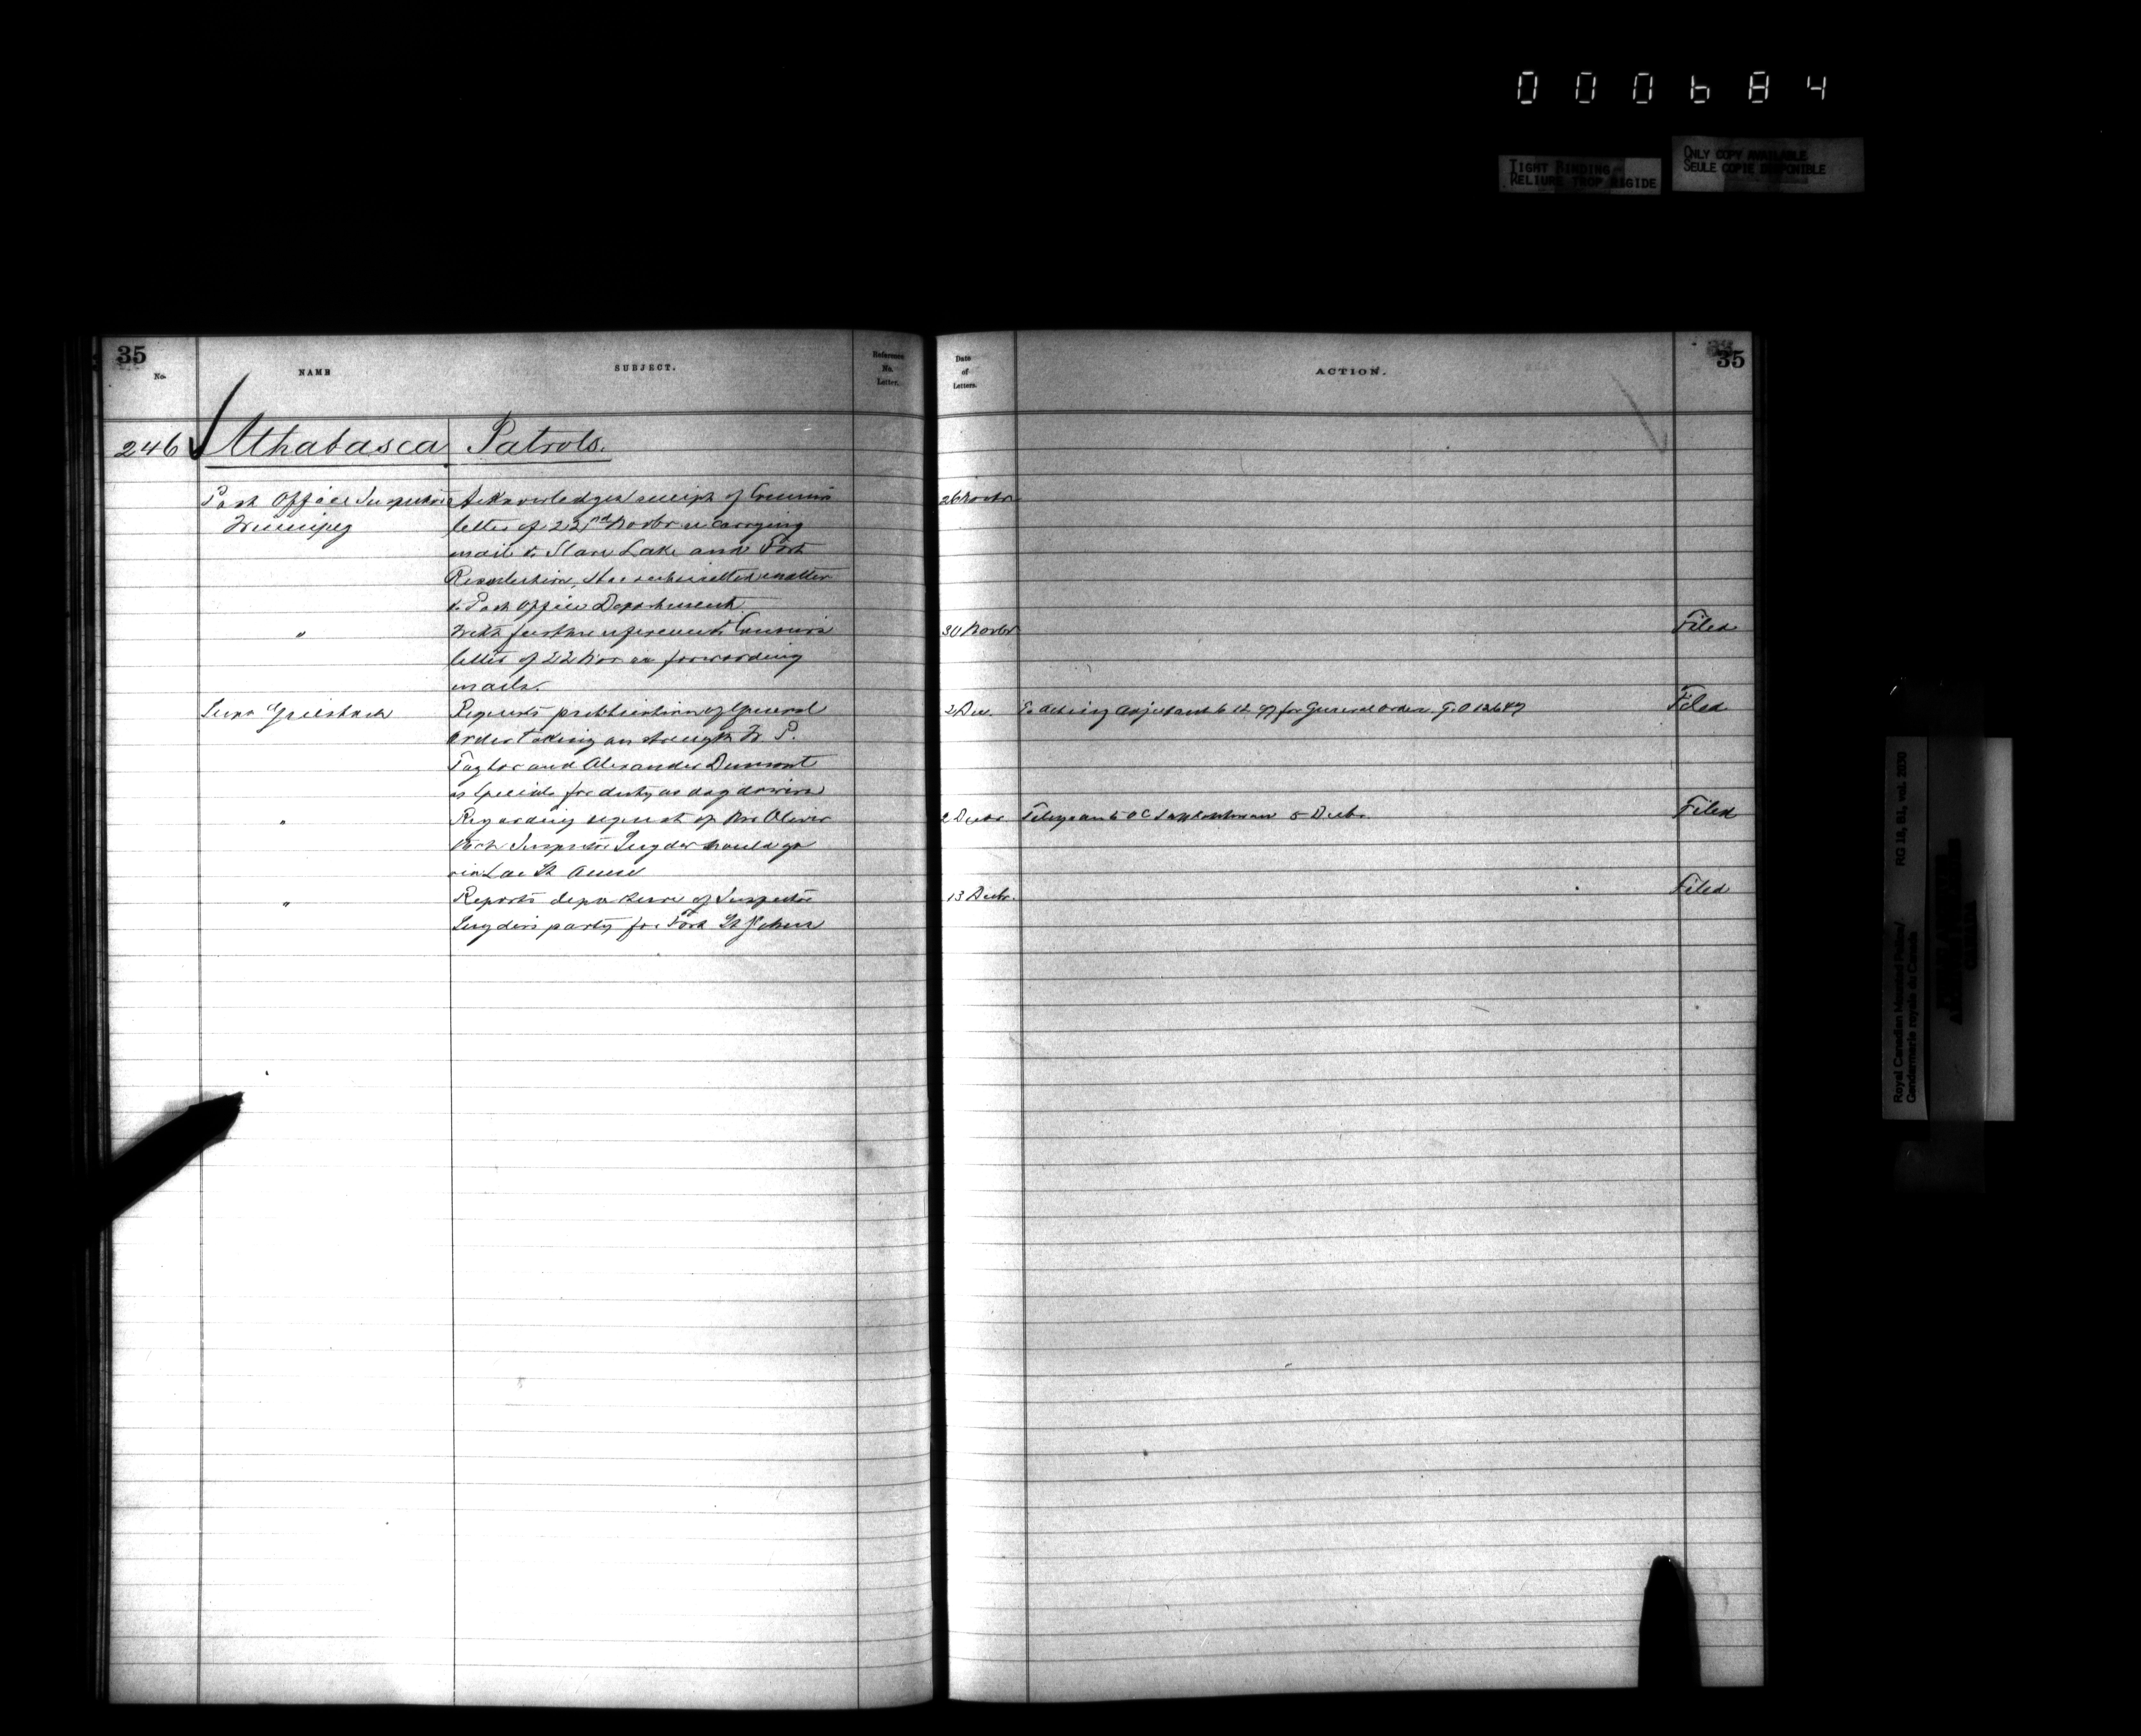 000684
TIGHT BINDING
RELIURE TROP RIGIDE
ONLY COPY AVAILABLE
SEULE COPIE DISPONIBLE
35
No.
NAME
SUBJECT.
Reference
No.
Letter.
Date
of
Letters.
ACTION.
35
246 Athabasca Patrols.
Post Office Inspector Acknowledges receipt of Commrs 26 Novbr
Winnipeg letter of 22nd Novbr re carrying
mail to Slave Lake and Fort
Resolution, Has submitted matter
to Post Office Department.
" With further reference to Commrs 30 Novbr Filed
letter of 22 Nov re forwarding
mails.
Supt Griesbach Requests publication of General 2 Dec. To Acting Adjutant 6 12 97 for General Order. G.O 12647 Filed
Order taking on strength W. P.
Taylor and Alexander Dumont
as Specials for duty as dog drivers
" Regarding request of Mr Oliver 2 Decbr. Telegram to OC Saskatchewan 5 Decbr. Filed
that Inspector Snyder should go
via Lac St Anne
" Reports departure of Inspector 13 Decbr. Filed
Snyders party for Fort St John
Royal Canadian Mounted Police/
Gendarmerie royale du Canada
RG 18, B1, vol. 2030